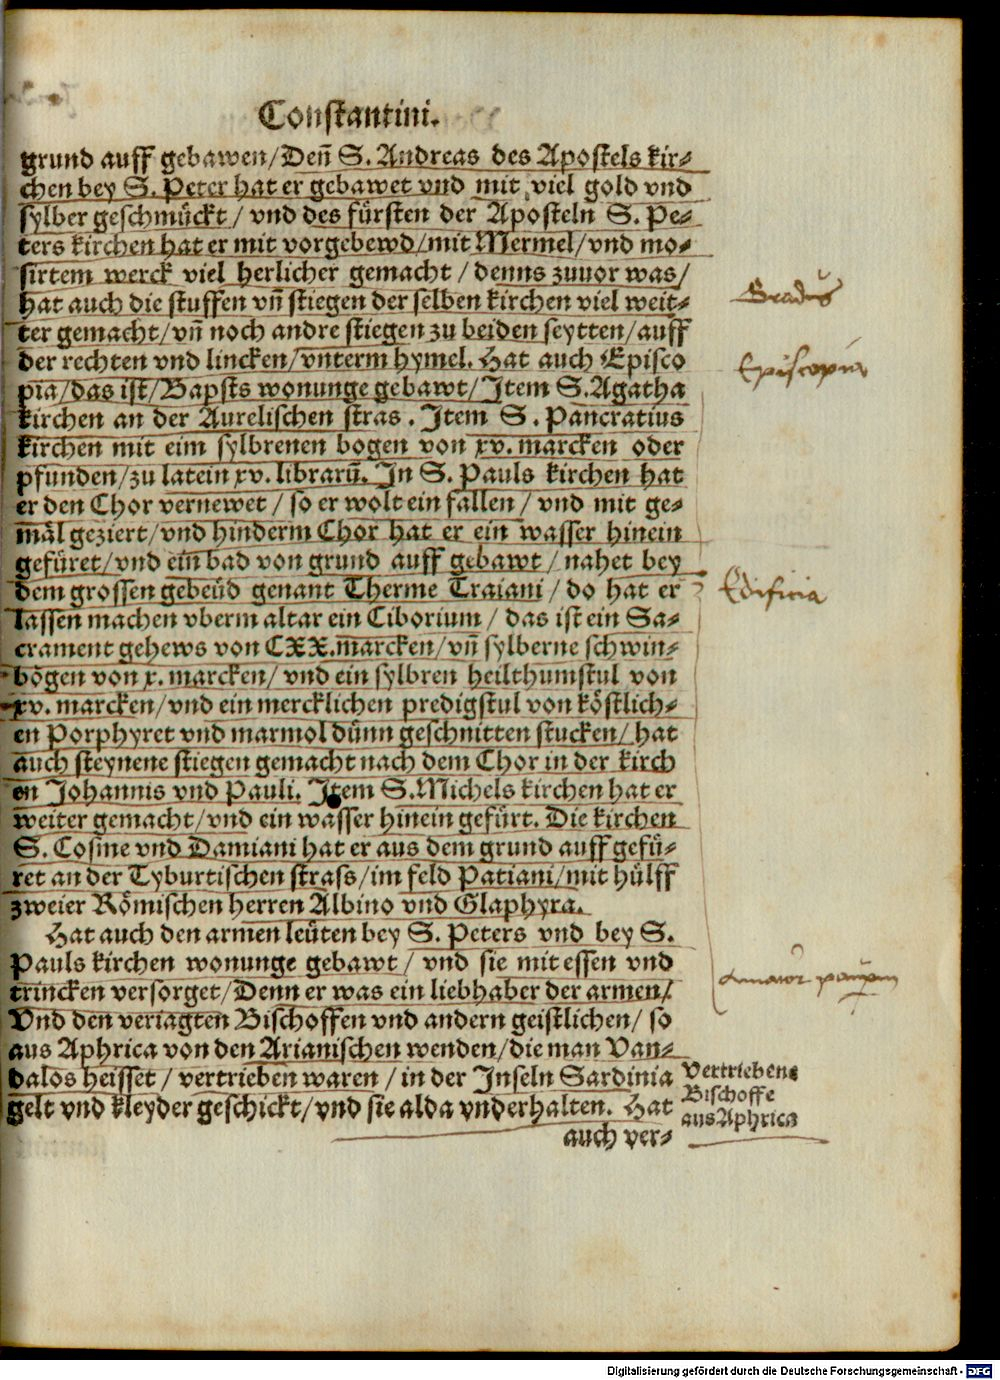 Constantini.
grund auff gebawen/Deñ S. Andreas des Apostels kir⸗
chen bey S. Peter hat er gebawet vnd mit viel gold vnd
sylber geschmückt/ vnd des fürsten der Aposteln S. Pe⸗
ters kirchen hat er mit vorgebewd/mit Mermel/vnd mo⸗
sirtem werck viel herlicher gemacht/denns zuuor was/
hat auch die stuffen vñ stiegen der selben kirchen viel weit⸗
ter gemacht/vñ noch andre stiegen zu beiden seytten/auff
der rechten vnd lincken/vnterm hymel. Hat auch Episco
pia/das ist/Bapsts wonunge gebawt/Item S.Agatha
kirchen an der Aurelischen stras. Item S. Pancratius
kirchen mit eim sylbrenen bogen von xv. marcken oder
pfunden/zu latein xv. librarũ. In S. Pauls kirchen hat
er den Chor vernewet/ so er wolt ein fallen/ vnd mit ge⸗
mäl geziert/vnd hinderm Chor hat er ein wasser hinein
gefüret/vnd ein bad von grund auff gebawt/nahet bey
dem grossen gebeüd genant Therme Traiani/ do hat er
lassen machen vberm altar ein Ciborium/ das ist ein Sa⸗
crament gehews von CXX.marcken/vñ sylberne schwin⸗
bögen von x. marcken/ vnd ein sylbren heilthumstul von
xv. marcken/vnd ein mercklichen predigstul von köstlich⸗
en Porphyret vnd marmol dünn geschnitten stucken/ hat
auch steynene stiegen gemacht nach dem Chor in der kirch
en Johannis vnd Pauli. Item S.Michels kirchen hat er
weiter gemacht/vnd ein wasser hinein gefürt. Die kirchen
S. Cosme vnd Damiani hat er aus dem grund auff gefü⸗
ret an der Tyburtischen strass/im feld Patiani/mit hülff
zweier Römischen herren Albino vnd Glaphyra.
Hat auch den armen leüten bey S. Peters vnd bey S.
Pauls kirchen wonunge gebawt/ vnd sie mit essen vnd
trincken versorget/Denn er was ein liebhaber der armen/
Vnd den veriagten Bischoffen vnd andern geistlichen/ so
aus Aphrica von den Arianischen wenden/die man Van⸗
dalos heisset/ vertrieben waren/ in der Inseln Sardinia
gelt vnd kleyder geschickt/vnd sie alda vnderhalten. Hat
auch ver⸗
Gradus
Episcopia
Edificia
Amator paupm
Vertriebene
Bischoffe
aus Aphrica
Digitalisierung gefördert durch die Deutsche Forschungsgemeinschaft - DFG